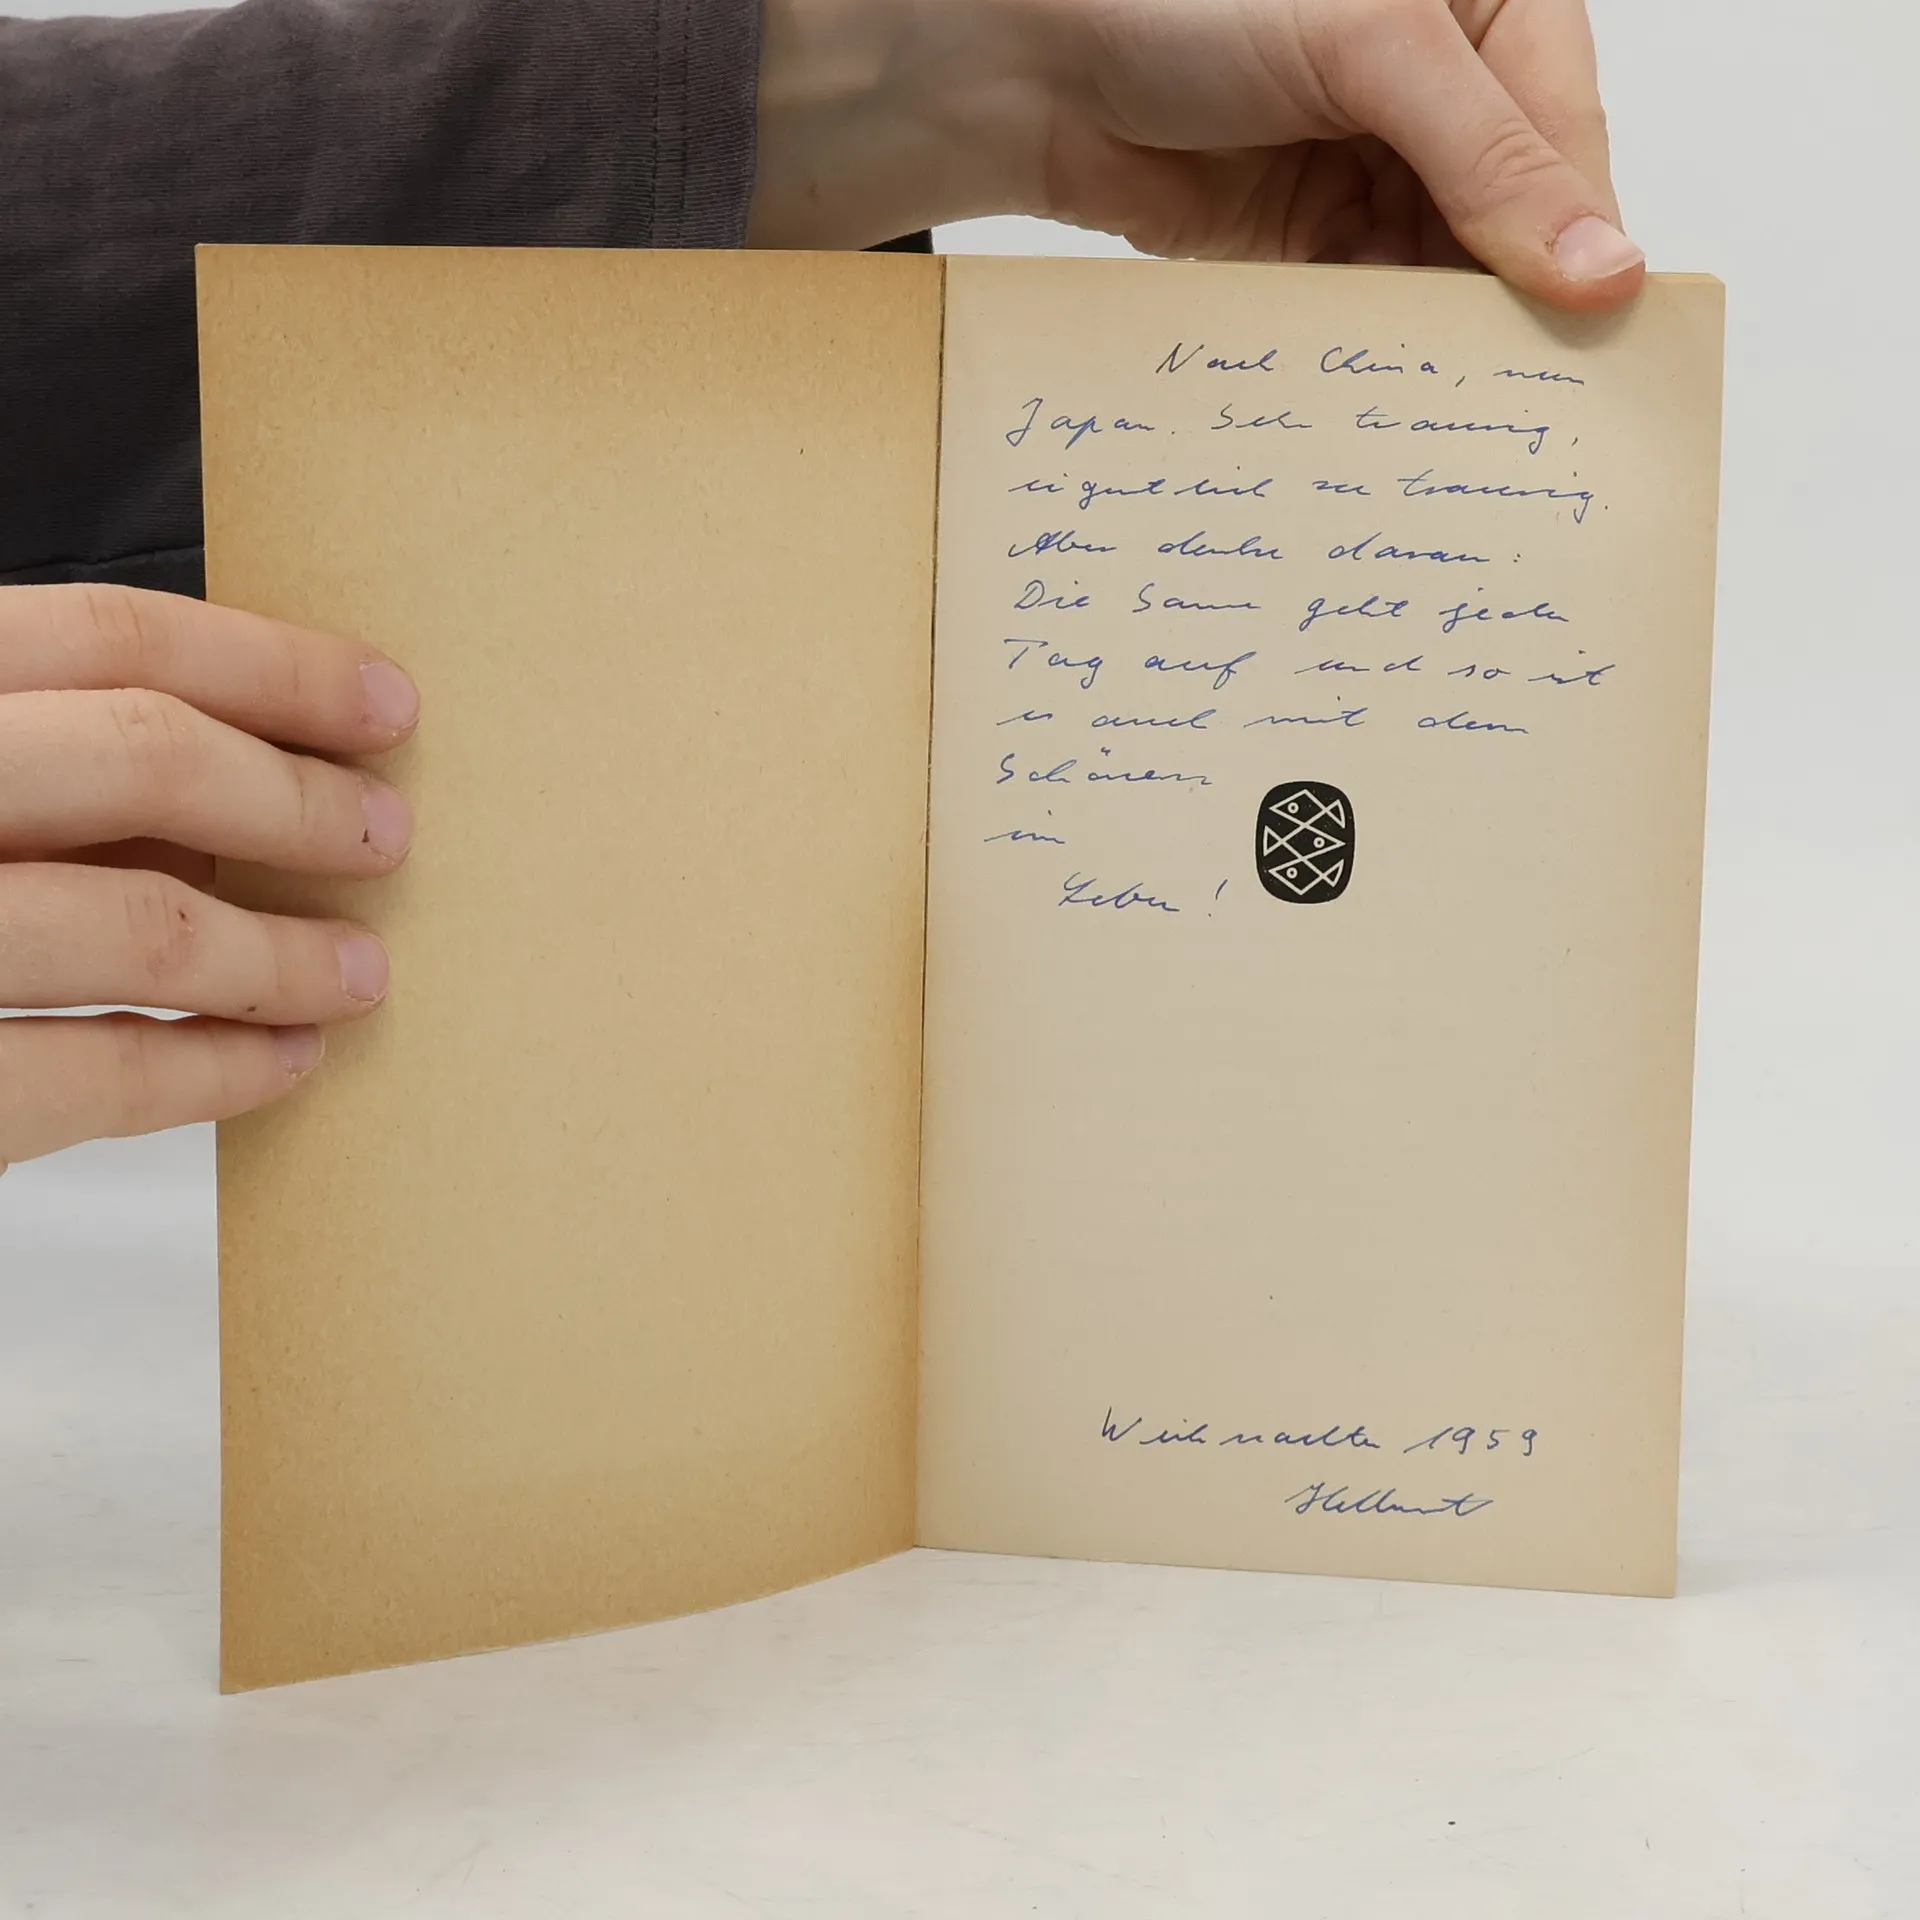 Nach China, nun
Japan. Sehr traurig,
eigentlich zu traurig.
Aber denke daran:
Die Sonne geht jeden
Tag auf und so ist
es auch mit dem
Schönen
im
Leben!
Weihnachten 1959